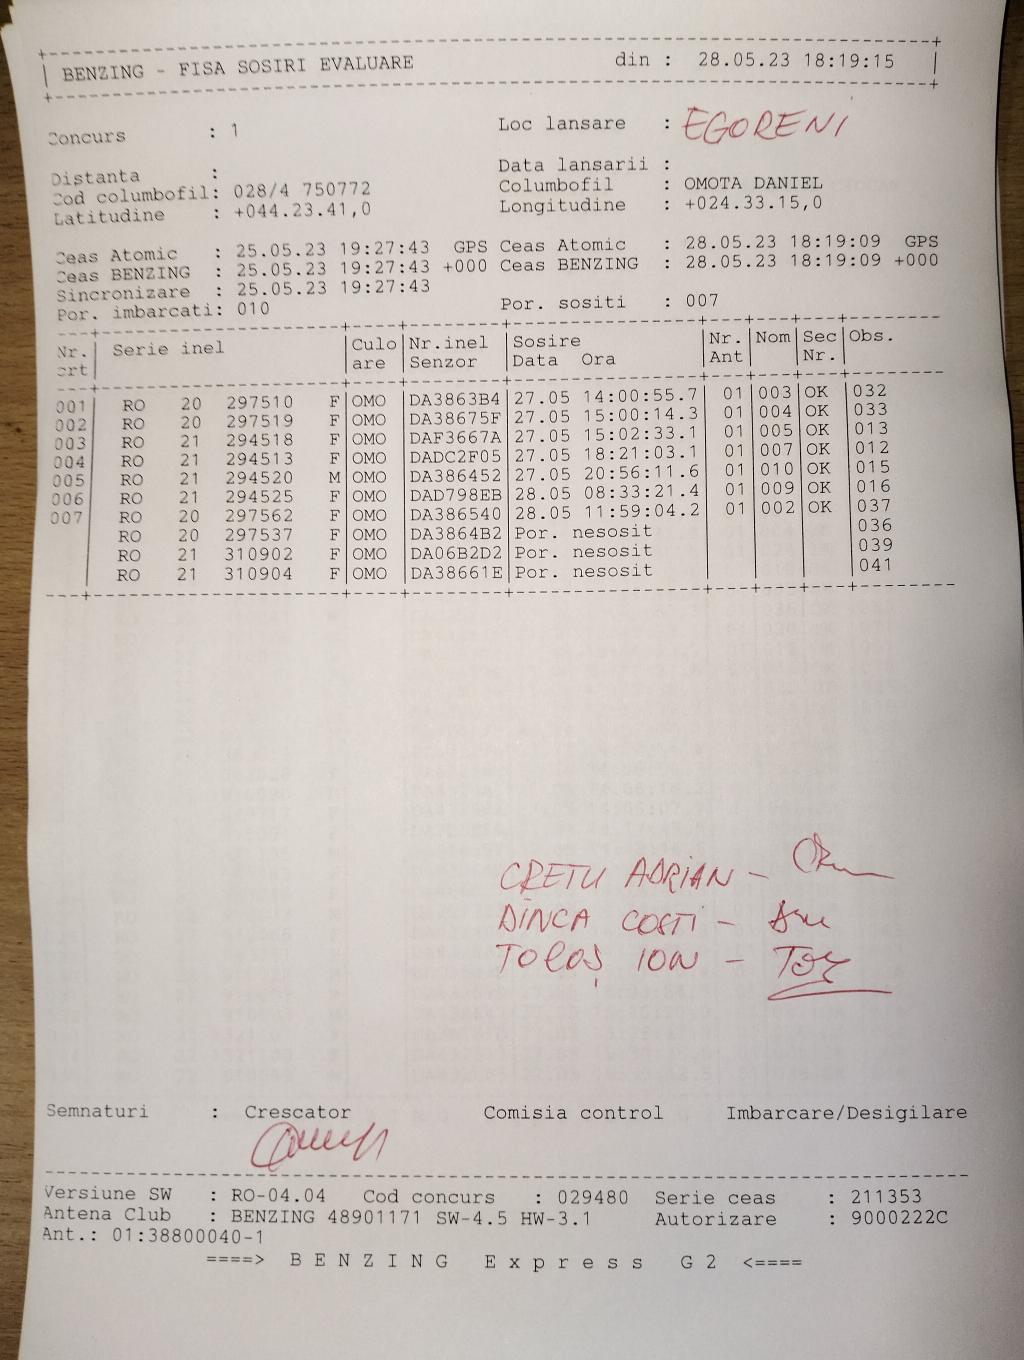 BENZING - FISA SOSIRI EVALUARE din : 28.05.23 18:19:15
Concurs : 1 Loc lansare : EGORENI
Distanta : Data lansarii :
Cod columbofil: 028/4 750772 Columbofil : OMOTA DANIEL
Latitudine : +044.23.41,0 Longitudine : +024.33.15,0
Ceas Atomic : 25.05.23 19:27:43 GPS Ceas Atomic : 28.05.23 18:19:09 GPS
Ceas BENZING : 25.05.23 19:27:43 +000 Ceas BENZING : 28.05.23 18:19:09 +000
Sincronizare : 25.05.23 19:27:43
Por. imbarcati: 010 Por. sositi : 007
Nr. Serie inel Culo Nr.inel Sosire Nr. Nom Sec Obs.
crt are Senzor Data Ora Ant Nr.
001 RO 20 297510 F OMO DA3863B4 27.05 14:00:55.7 01 003 OK 032
002 RO 20 297519 F OMO DA38675F 27.05 15:00:14.3 01 004 OK 033
003 RO 21 294518 F OMO DAF3667A 27.05 15:02:33.1 01 005 OK 013
004 RO 21 294513 F OMO DADC2F05 27.05 18:21:03.1 01 007 OK 012
005 RO 21 294520 M OMO DA386452 27.05 20:56:11.6 01 010 OK 015
006 RO 21 294525 F OMO DAD798EB 28.05 08:33:21.4 01 009 OK 016
007 RO 20 297562 F OMO DA386540 28.05 11:59:04.2 01 002 OK 037
RO 20 297537 F OMO DA3864B2 Por. nesosit 036
RO 21 310902 F OMO DA06B2D2 Por. nesosit 039
RO 21 310904 F OMO DA38661E Por. nesosit 041
CRETU ADRIAN -
DINCA COSTI -
TOLOȘ ION -
Semnaturi : Crescator Comisia control Imbarcare/Desigilare
Versiune SW : RO-04.04 Cod concurs : 029480 Serie ceas : 211353
Antena Club : BENZING 48901171 SW-4.5 HW-3.1 Autorizare : 9000222C
Ant.: 01:38800040-1
====> B E N Z I N G E x p r e s s G 2 <====